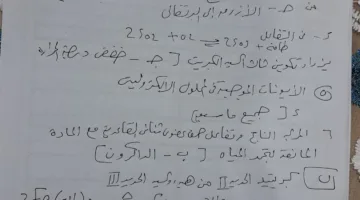 من حـ - الأزرق إلى البرتقالي
د - في التفاعل 2SO2 + O2 ⇌ 2SO3 + طاقة
يزداد تكوين ثالث أكسيد الكبريت [حـ - خفض درجة الحرارة
5 الأيونات الموجبة في المحلول الإلكتروليتي
د [جميع ما سبق]
6 المركب الناتج من تفاعل حمض عضوي ثنائي القاعدية مع المادة
المانعة لتجمد المياه [ب - الداكرون]
كبريتيد الحديد II من هيدروكسيد الحديد III